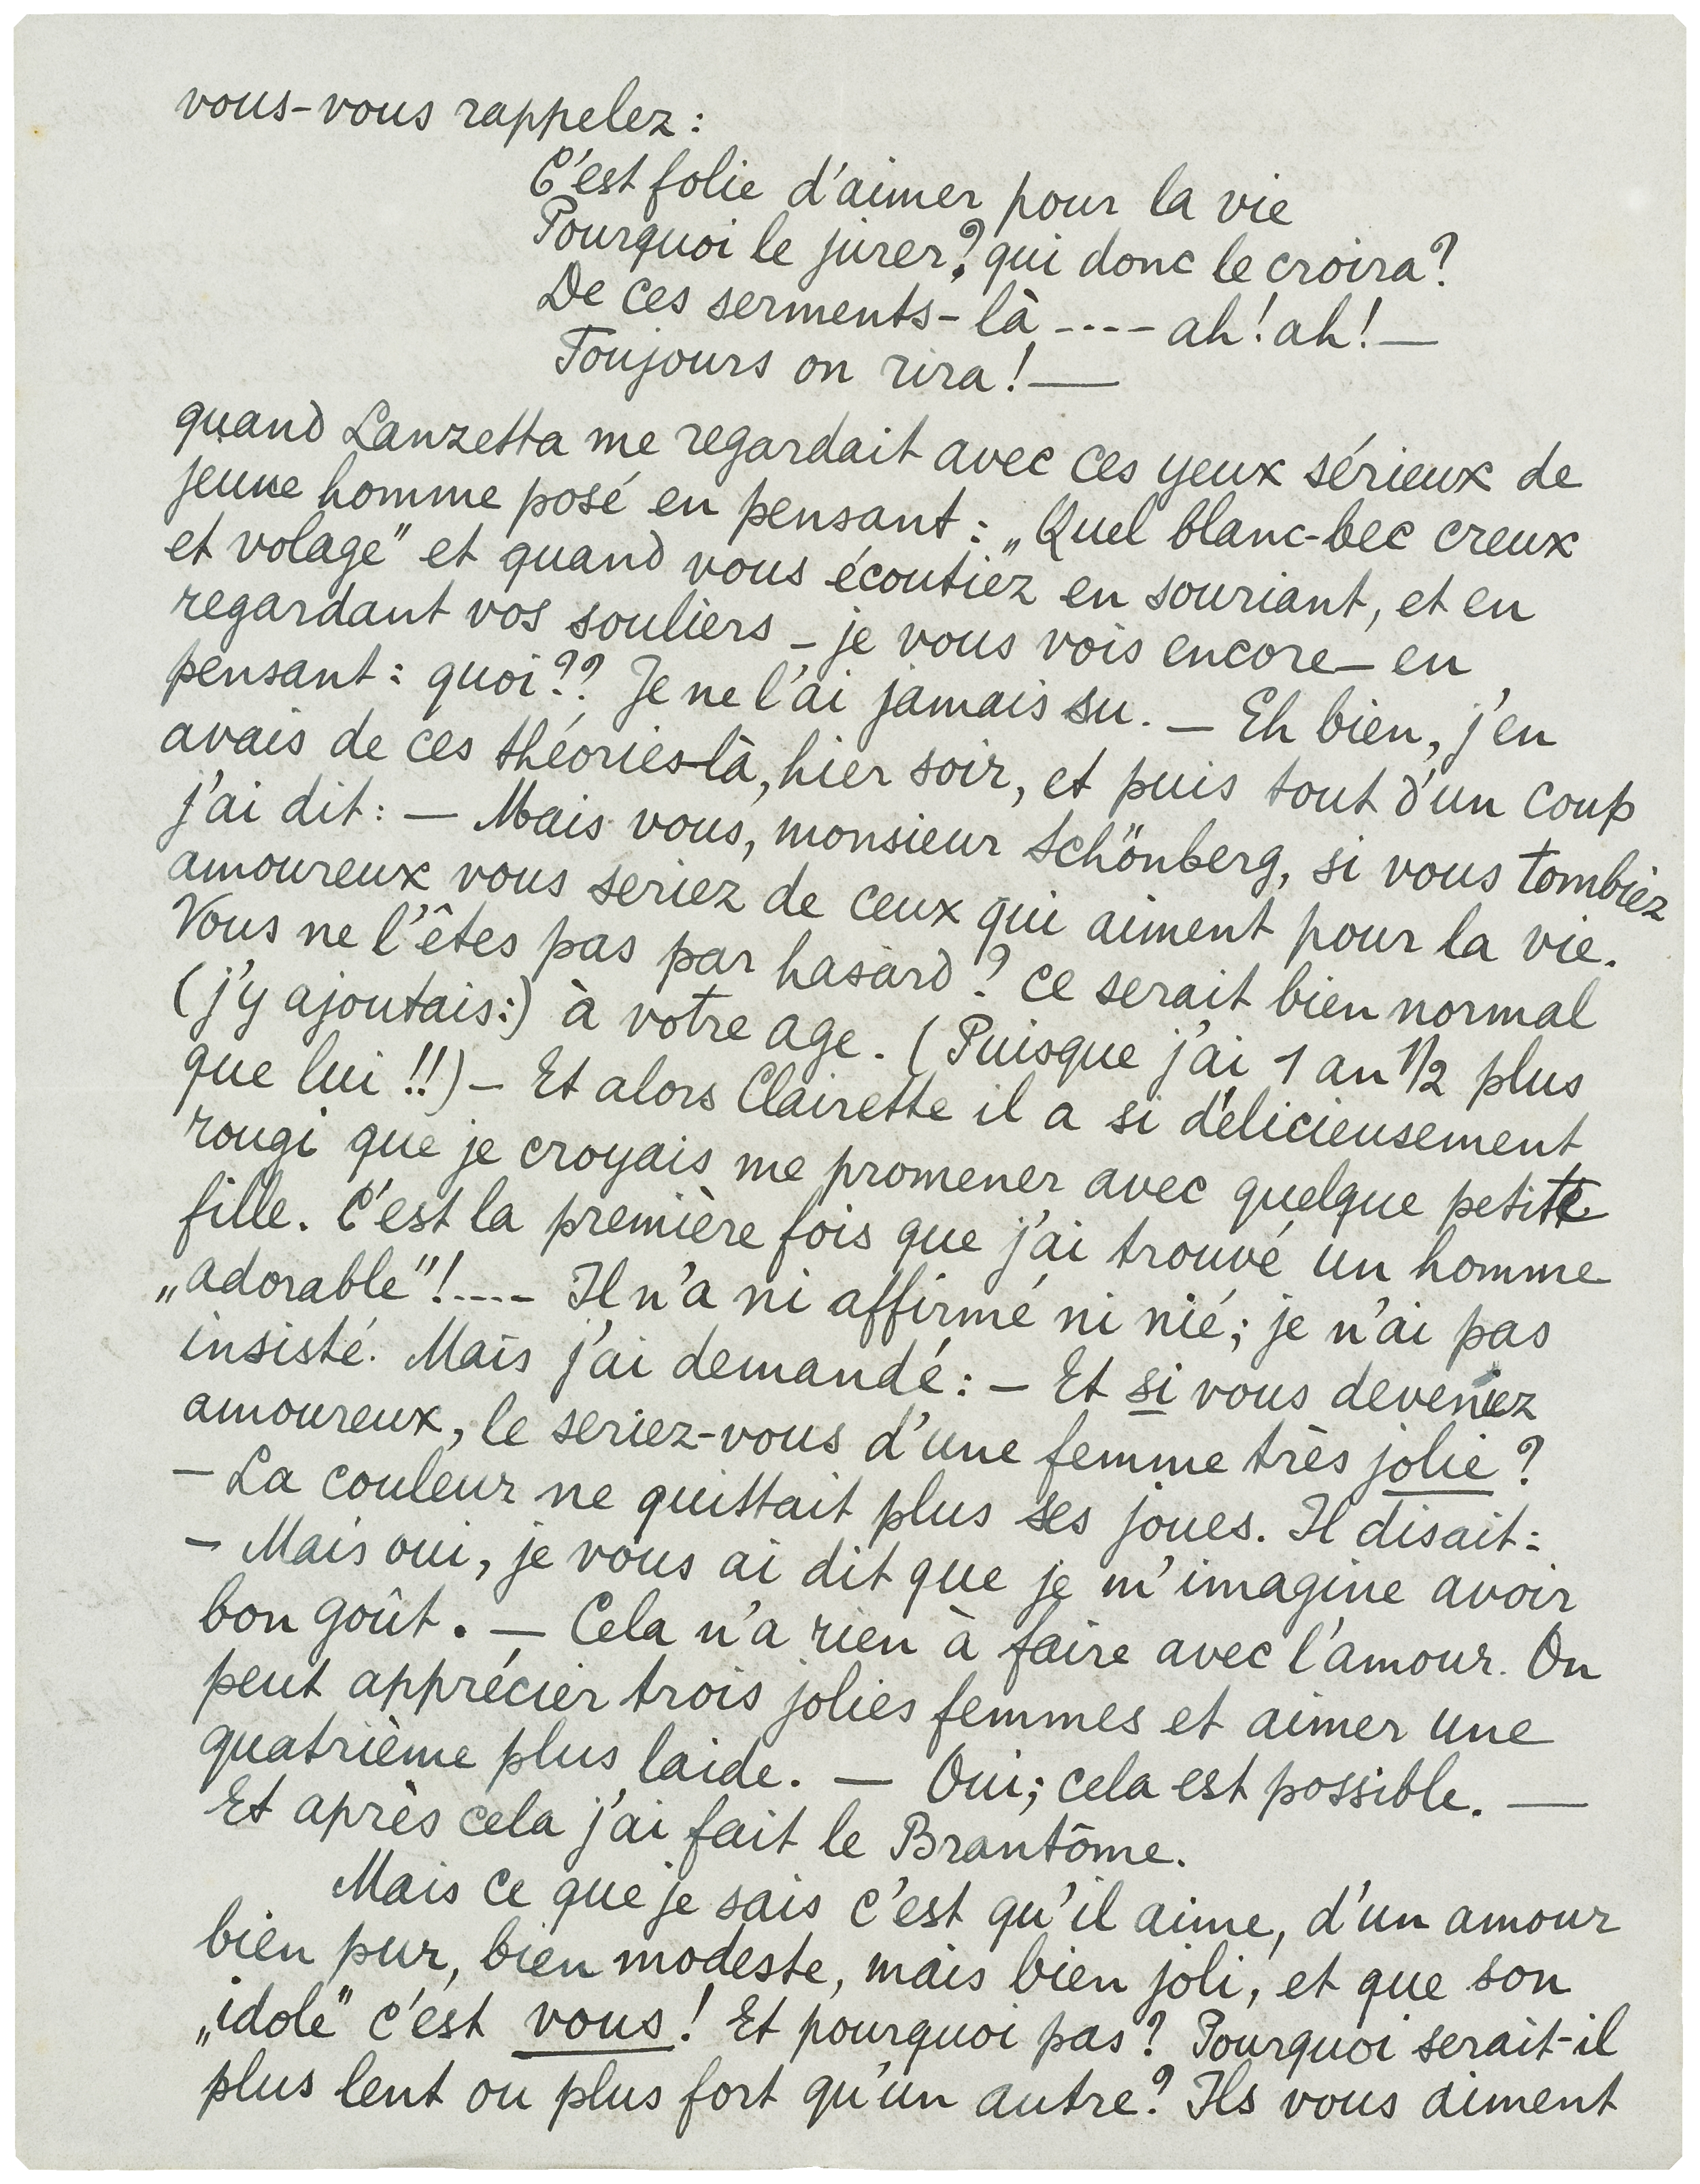 vous-vous rappelez :
C'est folie d'aimer pour la vie
Pourquoi le jurer? qui donc le croira?
De ces serments-là ---- ah! ah! —
Toujours on rira! —
quand Lanzetta me regardait avec ces yeux sérieux de
jeune homme posé en pensant : „Quel blanc-bec creux
et volage" et quand vous écoutiez en souriant, et en
regardant vos souliers – je vous vois encore – en
pensant : quoi?? Je ne l'ai jamais su. — Eh bien, j'en
avais de ces théories-là, hier soir, et puis tout d'un coup
j'ai dit : — Mais vous, monsieur Schönberg, si vous tombiez
amoureux vous seriez de ceux qui aiment pour la vie.
Vous ne l'êtes pas par hasard? ce serait bien normal
(j'y ajoutais:) à votre age. (Puisque j'ai 1 an 1/2 plus
que lui!!) – Et alors Clairette il a si délicieusement
rougi que je croyais me promener avec quelque petite
fille. C'est la première fois que j'ai trouvé un homme
„adorable"! ---- Il n'a ni affirmé ni nié; je n'ai pas
insisté. Mais j'ai demandé : — Et si vous deveniez
amoureux, le seriez-vous d'une femme très jolie?
– La couleur ne quittait plus ses joues. Il disait :
– Mais oui, je vous ai dit que je m'imagine avoir
bon goût. — Cela n'a rien à faire avec l'amour. On
peut apprécier trois jolies femmes et aimer une
quatrième plus laide. — Oui; cela est possible. —
Et après cela j'ai fait le Brantôme.
Mais ce que je sais c'est qu'il aime, d'un amour
bien pur, bien modeste, mais bien joli, et que son
„idole" c'est vous! Et pourquoi pas? Pourquoi serait-il
plus lent ou plus fort qu'un autre? Ils vous aiment